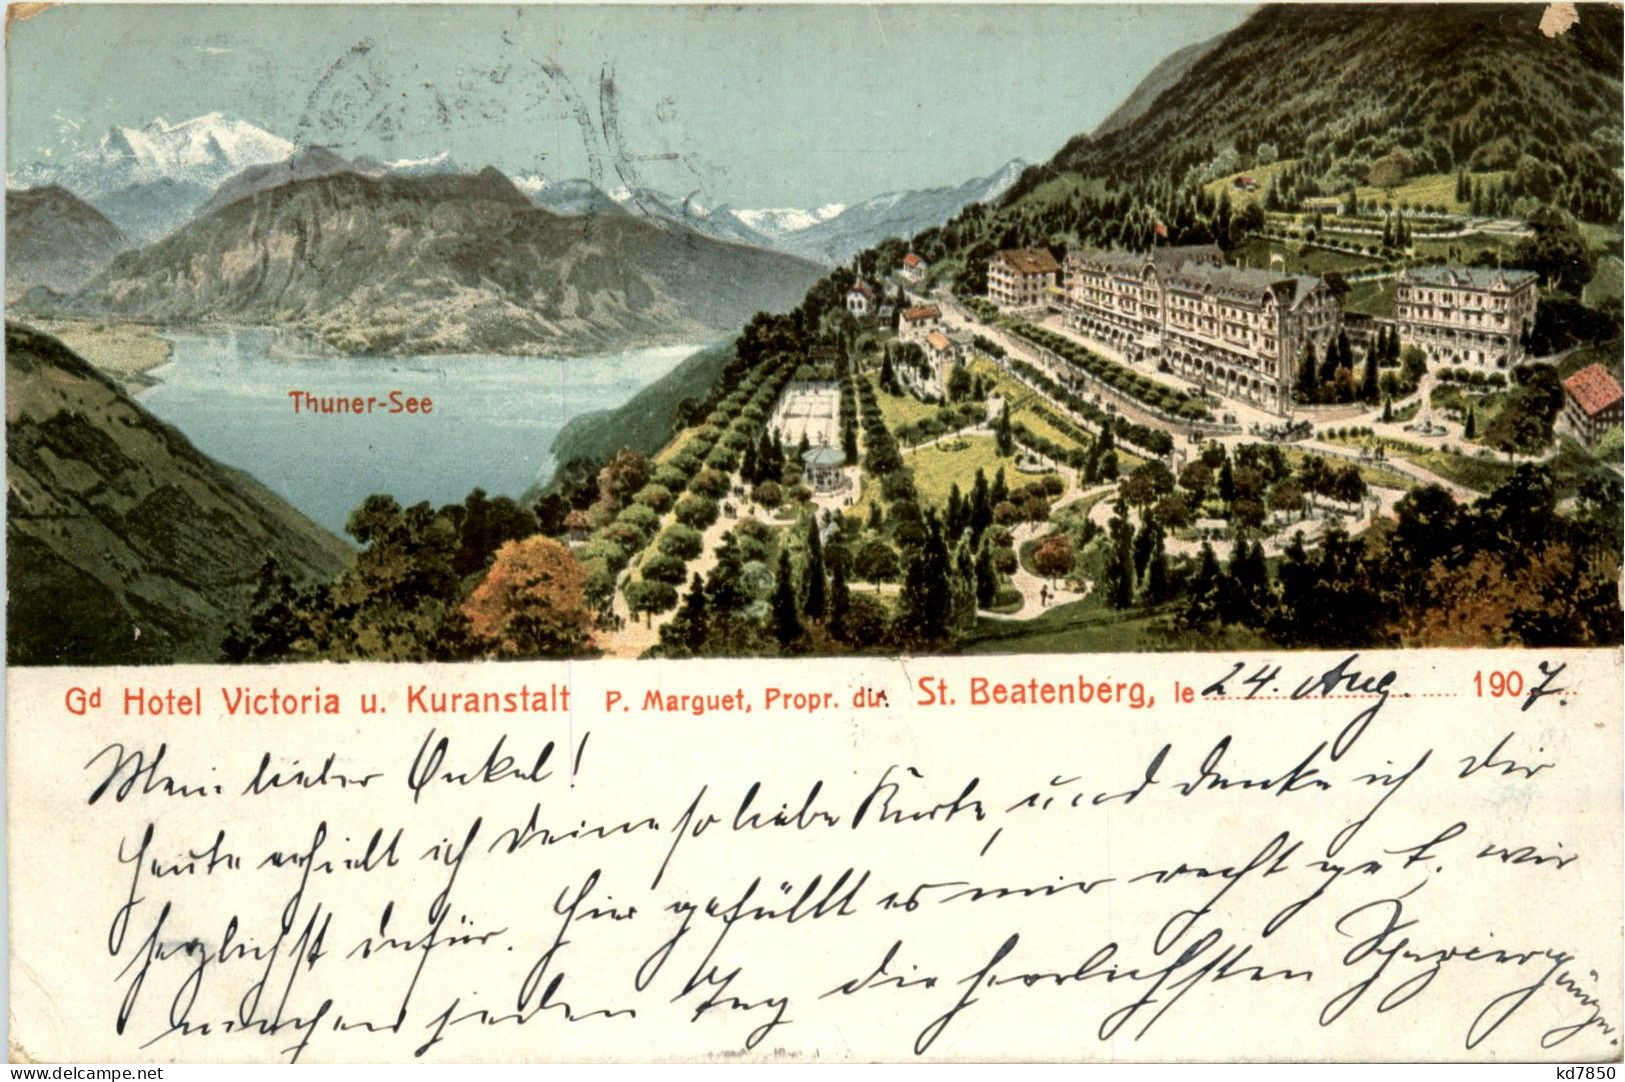 Thuner-See
Gd Hotel Victoria u. Kuranstalt P. Marguet, Propr. dir. St. Beatenberg, le 24. Aug. 1907.
Mein lieber Onkel!
Heute erhielt ich Deine so liebe Karte, und danke ich Dir
herzlichst dafür. Hier gefällt es mir recht gut, wir
machen jeden Tag die herrlichsten Spaziergänge.
delcampe.net
kd7850